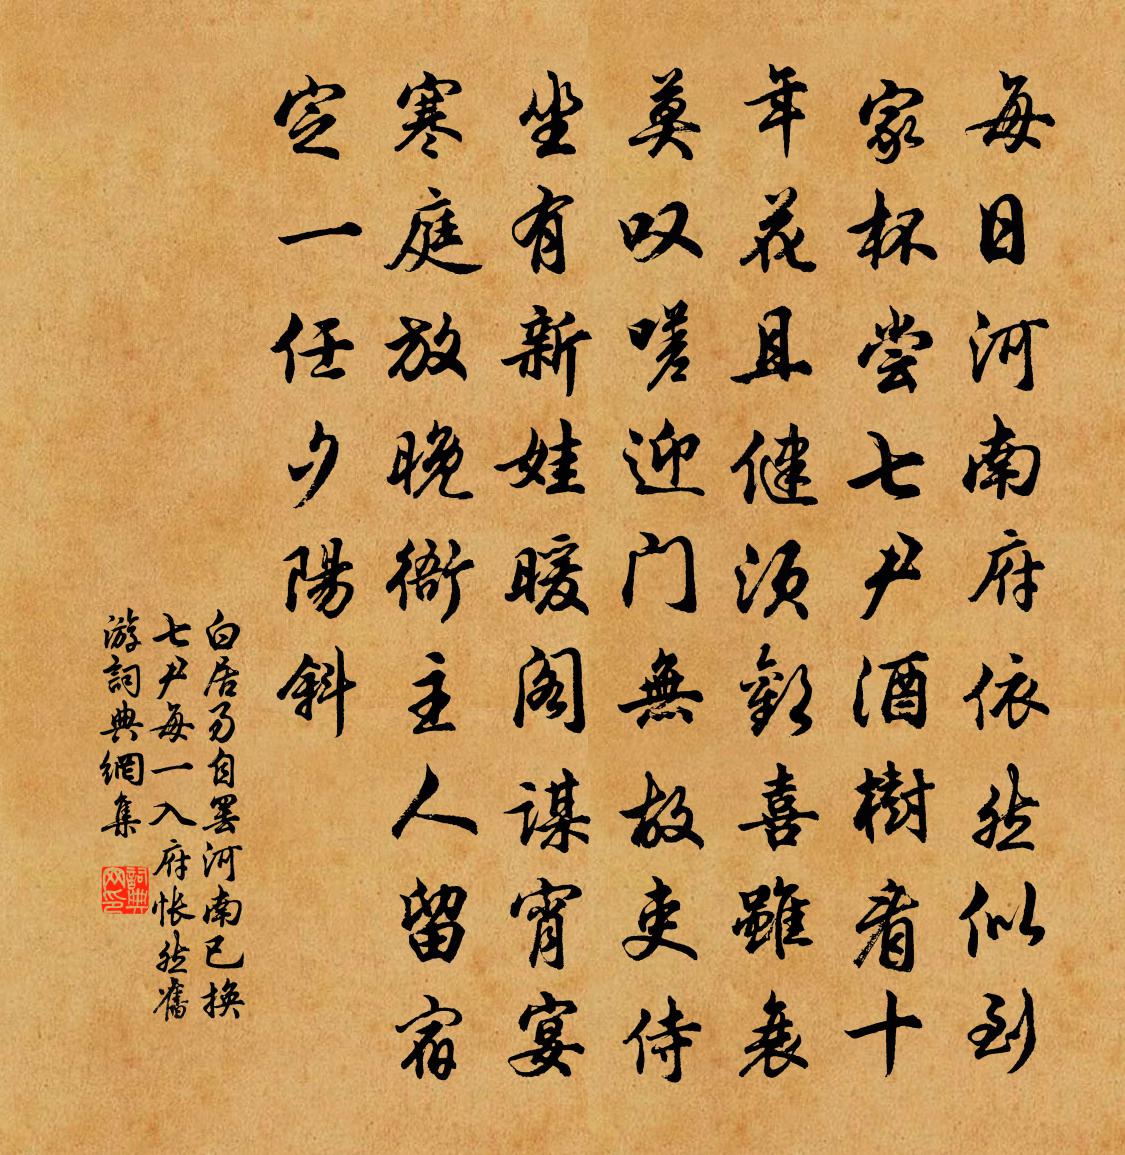 每日河南府依然似到
家杯尝七尹酒樹看十
年花且健须歡喜雖衰
莫叹嗟迎门無故吏侍
坐有新娃暖阁謀宵宴
寒庭放晚衙主人留宿
定一任夕陽斜
白居易自罢河南已换
七尹每一入府怅然舊
游詞典網集
詞典网印